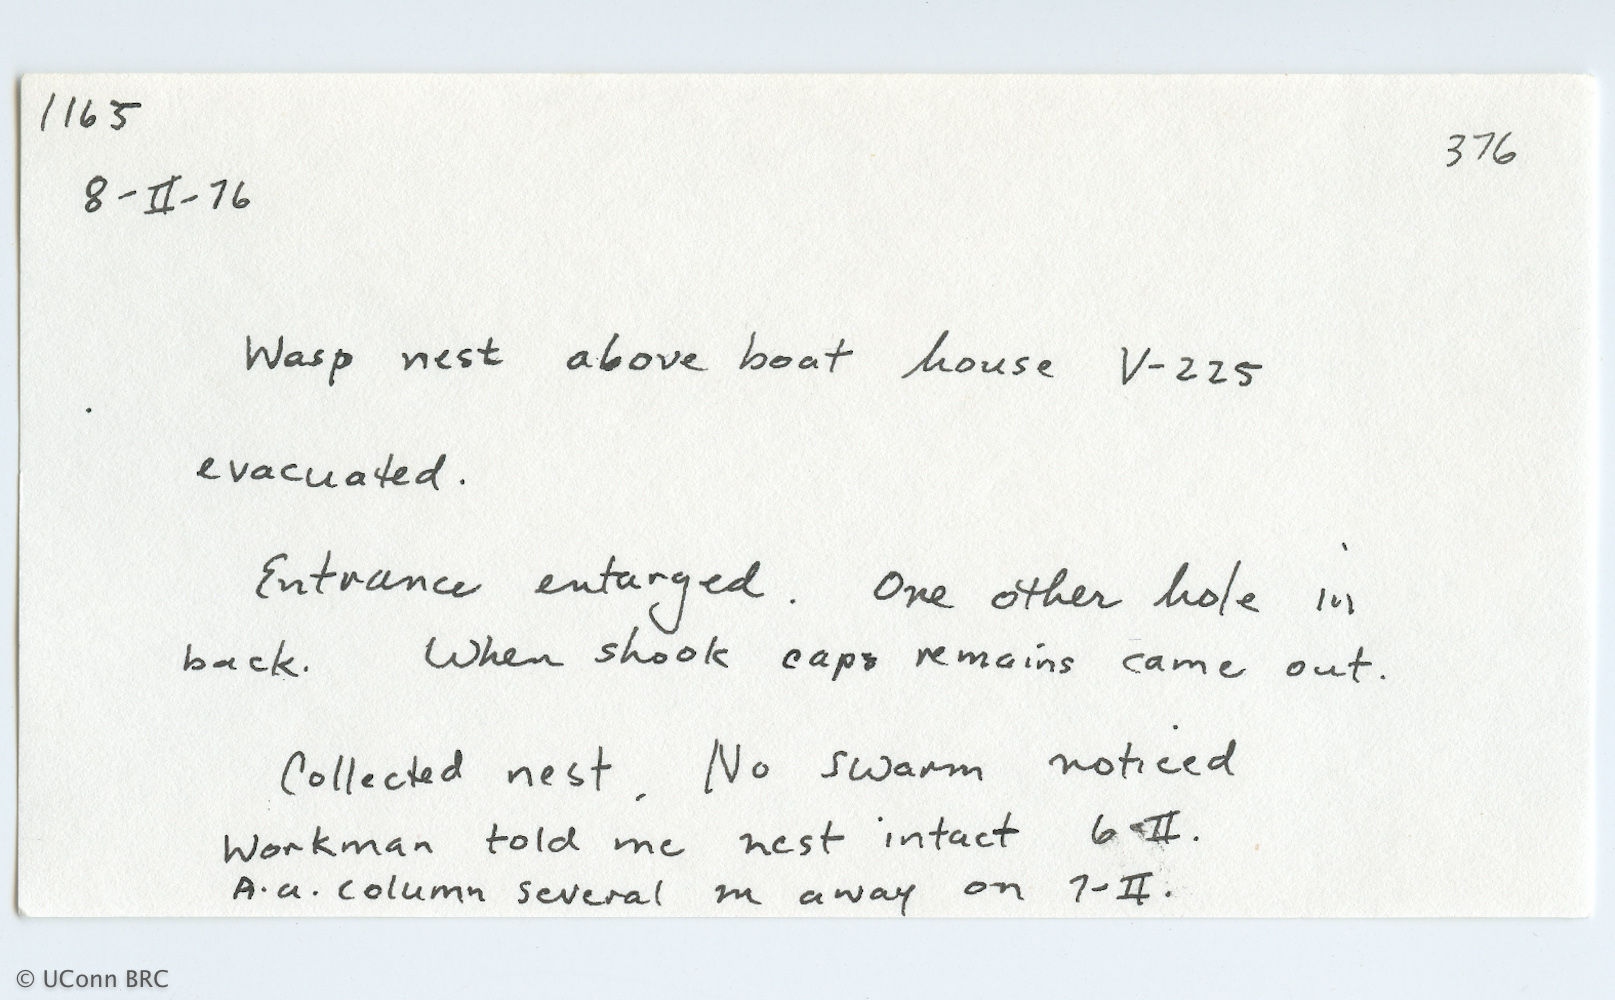 1165
376
8-II-76
Wasp nest above boat house V-225
evacuated.
Entrance entarged. One other hole in
back. When shook caps remains came out.
Collected nest. No swarm noticed
Workman told me nest intact 6-II.
A.a. column several m away on 7-II.
© UConn BRC